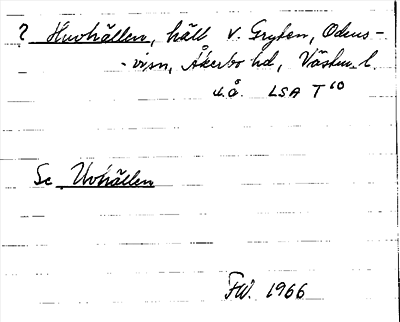 ? Huvhällen, häll v. Gryten, Odens-
- visn, Åkerbo hd, Västm. l.
u.å. LSA T 10
Se Uvhällen
FW. 1966